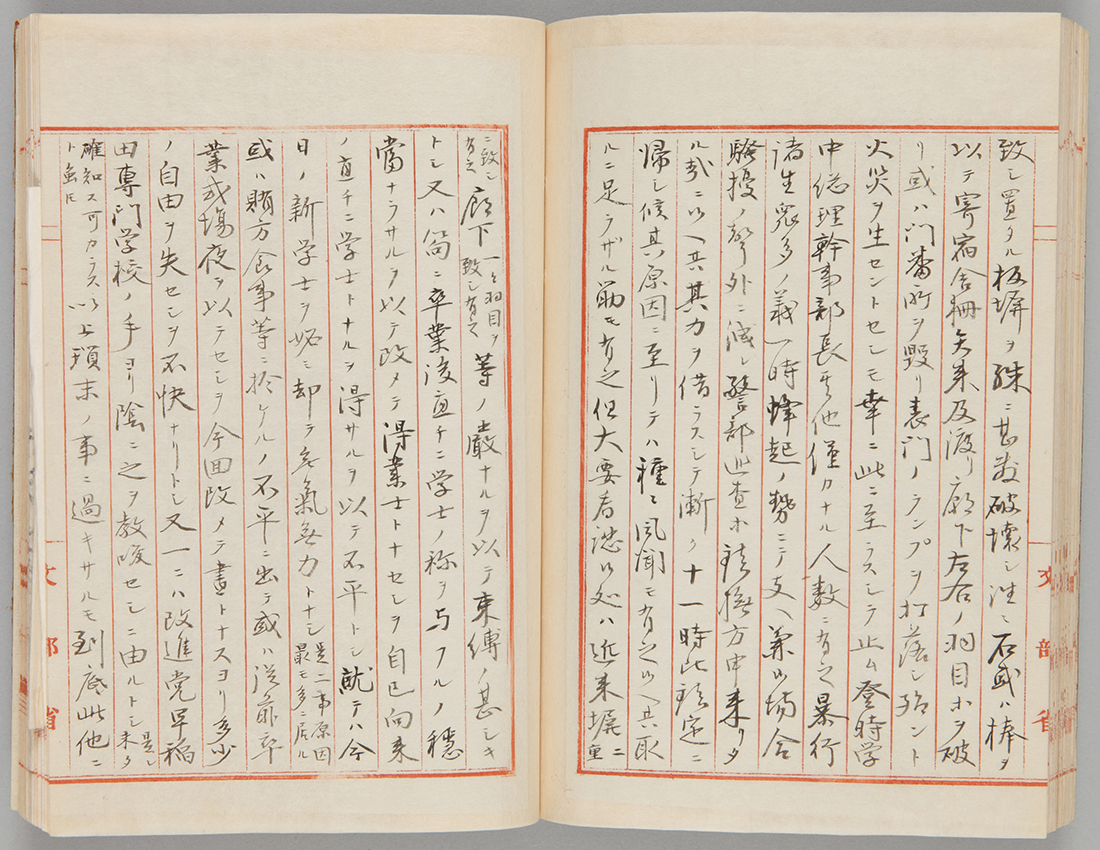 致シ置タル板塀ヲ殊ニ甚敷破壊シ進ミ石或ハ棒ヲ
以テ寄宿舎柵矢来及渡リ廊下左右ノ羽目ホヲ破
リ或ハ門番所ヲ毀リ表門ノランプヲ打落シ殆ント
火災ヲ生セントセシモ幸ニ此ニ至ラスシテ止ム登時学
中総理幹事部長其他僅カナル人数ニ有之暴行
諸生衆多ノ義一時蜂起ノ勢ニテ支ヘ兼候場合
騒擾ノ聲外ニ洩レ警部巡査ホ鎮撫方申来リタ
ル哉ニ候ヘ共其力ヲ借ラスシテ漸ク十一時比鎮定ニ
帰シ候其原因ニ至リテハ種々風聞モ有之候ヘ共取
ルニ足ラザル筋モ有之但大要看認候処ハ近来塀二重
ニ致シ有之廊下一ト羽目ヲ致シ有之等ノ厳ナルヲ以テ束縛ノ甚シキ
トシ又ハ尚ニ卒業後直チニ学士ノ称ヲ与フルノ穏
當ナラサルヲ以テ改メテ得業士トナセシヲ自己向来
ノ直チニ学士トナルヲ得サルヲ以テ不平トシ就テハ今
日ノ新学士ヲ妬ミ却テ無氣無力トナシ是二事原因最モ多ニ居ル
或ハ賄方食事等ニ於ケルノ不平ニ出テ或ハ従前卒
業式場夜ヲ以テセシヲ今回改メテ晝トナスヨリ多少
ノ自由ヲ失セシヲ不快ナリトシ又一ニハ改進党早稲
田専門学校ノ手ヨリ陰ニ之ヲ教唆セシニ由ルトシ是レ未タ
確知ス可カラスト雖氏以上瑣末ノ事ニ過キサルモ到底此他ニ
文部省
文部省